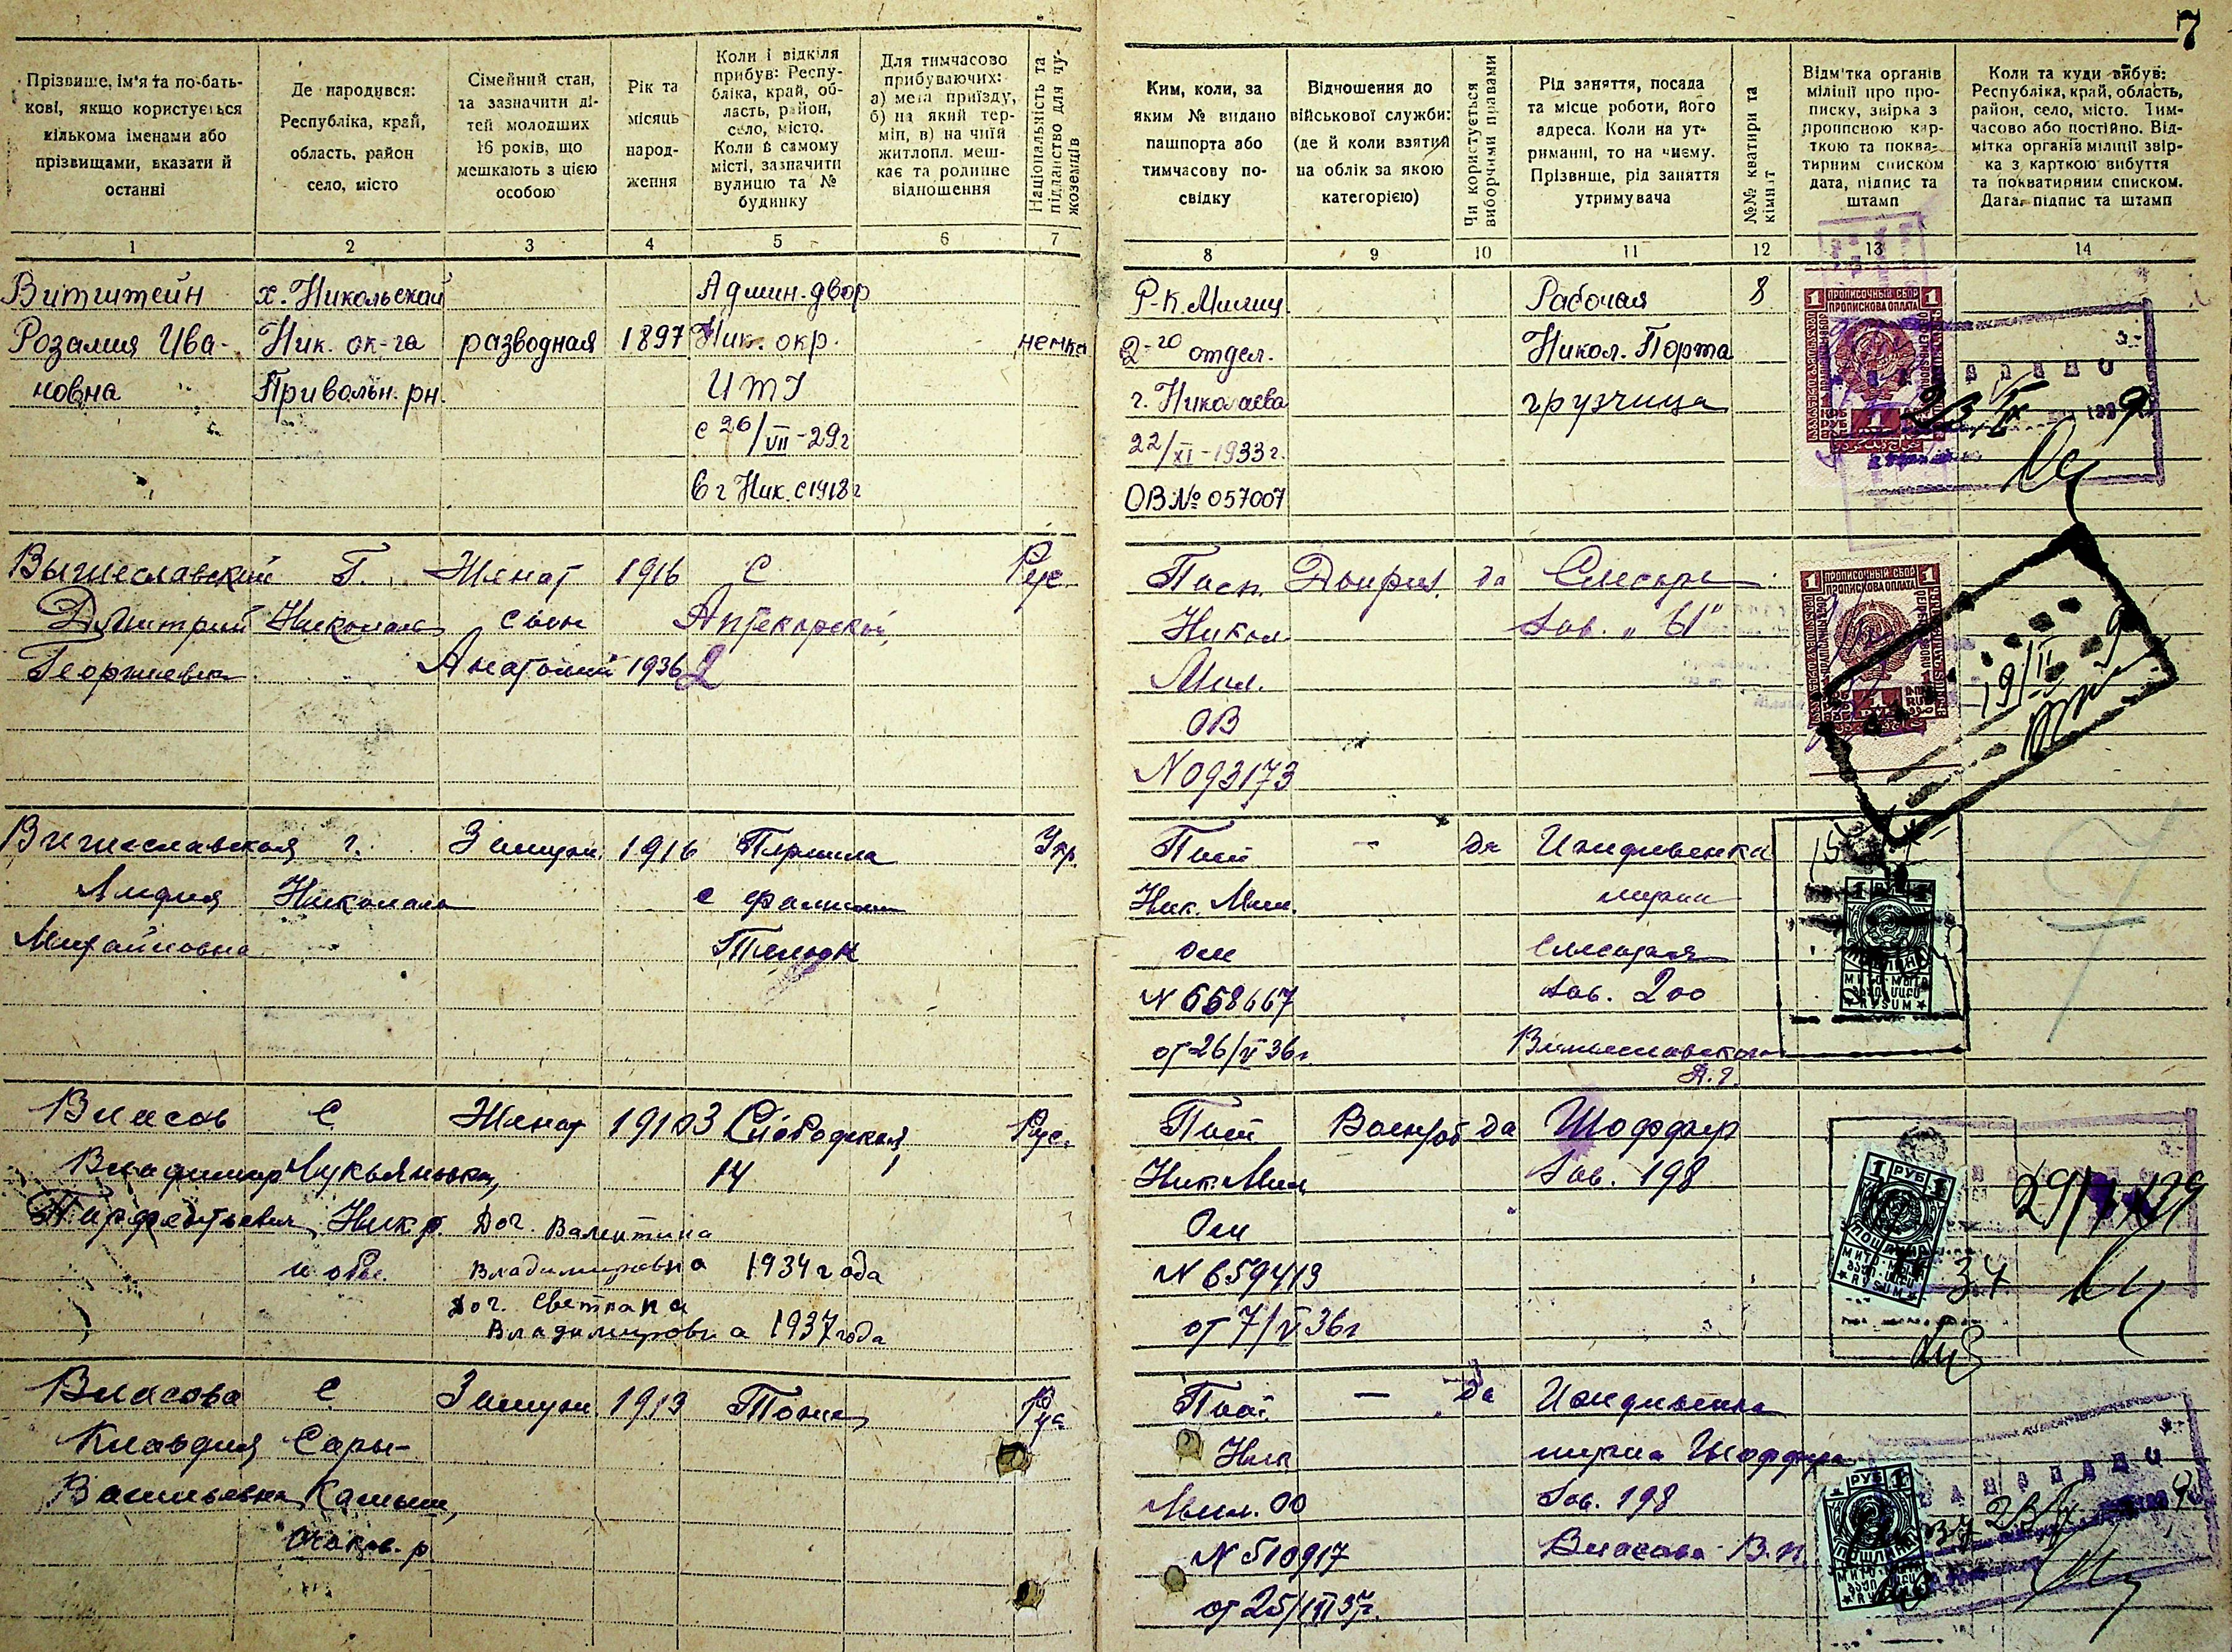 7
Прізвище, ім'я та по-бать-
кові, якщо користується
кількома іменами або
прізвищами, вказати й
останні
Де народився:
Республіка, край,
область, район
село, місто
Сімейний стан,
та зазначити ді-
тей молодших
16 років, що
мешкають з цією
особою
Рік та
місяць
народ-
ження
Коли і відкіля
прибув: Респу-
бліка, край, об-
ласть, район,
село, місто.
Коли в самому
місті, зазначити
вулицю та №
будинку
Для тимчасово
прибуваючих:
а) мета приїзду,
б) на який тер-
мін, в) на чиїй
житлопл. меш-
кає та родинне
відношення
Національність та
підданство для чу-
жоземців
Ким, коли, за
яким № видано
пашпорта або
тимчасову по-
свідку
Відношення до
військової служби:
(де й коли взятий
на облік за якою
категорією)
Чи користується
виборчими правами
Рід заняття, посада
та місце роботи, його
адреса. Коли на ут-
риманні, то на чиєму.
Прізвище, рід заняття
утримувача
№№ кватири та
кімнат
Відм'тка органів
міліції про про-
писку, звірка з
прописною кар-
ткою та поква-
тирним списком
дата, підпис та
штамп
Коли та куди вибув:
Республіка, край, область,
район, село, місто. Тим-
часово або постійно. Від-
мітка органів міліції звір-
ка з карткою вибуття
та покватирним списком.
Дата, підпис та штамп
1 2 3 4 5 6 7 8 9 10 11 12 13 14
Витштейн
Розалия Ива-
новна
х. Никольской
Ник. ок-га
Привольн. рн.
разводная
1897
Админ. двор
Ник. окр.
ИТУ
с 26/VII-29г
в г Ник. с 1918г
немка
Р-К. Милиц.
2-го отдел.
г. Николаева
22/XI-1933г.
ОВ № 057007
Рабочая
Никол. Порта
грузчица
8
ПРОПИСОЧНЫЙ СБОР
ПРОПИСКОВА ОПЛАТА
1
Вышеславский
Дмитрий
Георгиевич
Г.
Николаев
Женат
сын
Анатолий 1936
1916
С
Аптекарской,
2
Рус.
Пасп.
Никол
Мил.
ОВ
N 093173
Доприз.
да
Слесарь
Зав. „61"
ПРОПИСОЧНЫЙ СБОР
ПРОПИСКОВА ОПЛАТА
1
19/II 9
Вышеславская
Лидия
Михайловна
г.
Николаев
Замуж.
1916
Пярмила
с фамилии
Укр.
Пасп
Ник. Мил.
N 658667
от 26/V 36г.
—
да
Иждивенка
мужа
Слесаря
Зав. 200
Вышеславского
Д.Г.
1 РУБ 1
RYSUM
Власов
Владимир
Парфентьевич
С
Лукьяновка,
Ник р.
и обл.
Женат
Доч. Валентина
Владимировна 1934 года
Доч. Светлана
Владимировна 1937 года
19103
Слободская,
14
Рус.
Пасп
Ник. Мил
N 659413
от 7/V 36г
Военроб
да
Шоффер
Зав. 198
1 РУБ 1
ПОШЛИНА
RYSUM
Власова
Клавдия
Васильевна
С
Сары-
Камыш,
Очаков. р
Замуж.
1913
Тоже
Рус
Пасп.
Ник
Мил. ОО
N 510917
—
да
Иждивенка
мужа Шоффера
Зав. 198
Власова В.П.
1 РУБ 1
ПОШЛИНА
RYSUM